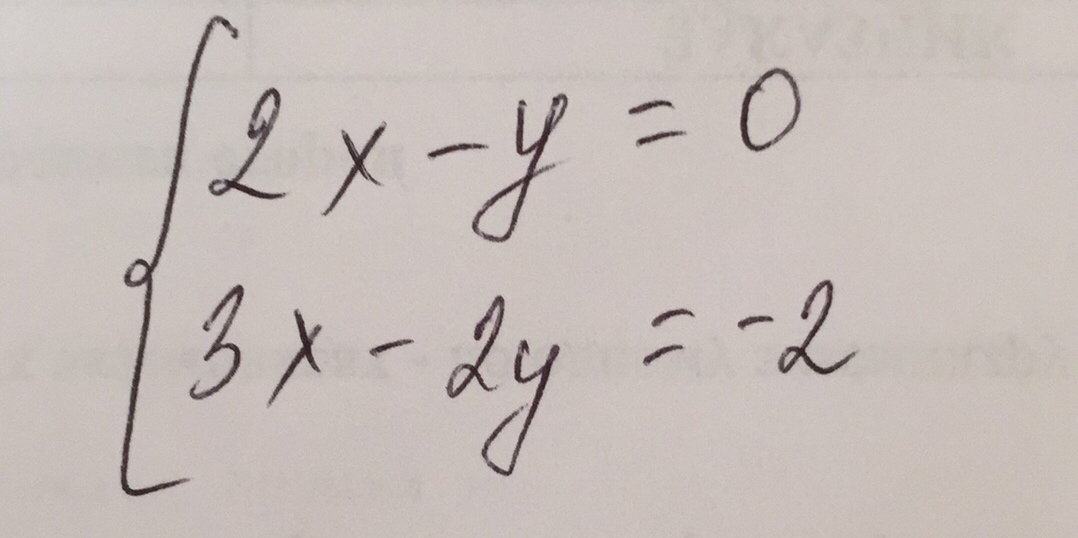 2x - y = 0
3x - 2y = -2